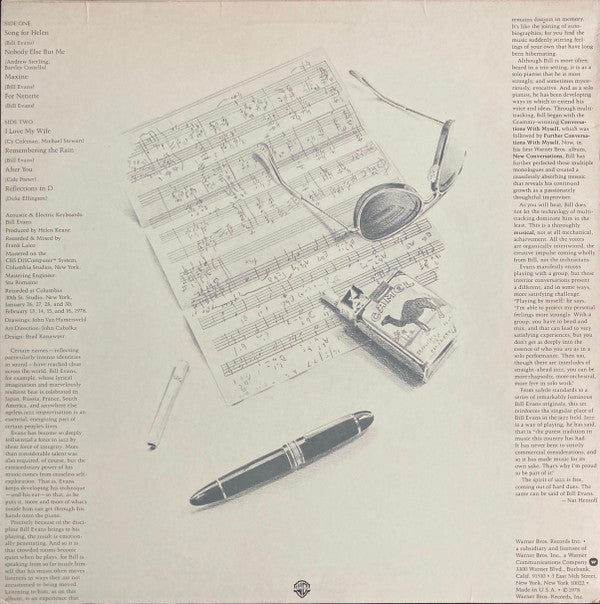 SIDE ONE
Song for Helen
(Bill Evans)
Nobody Else But Me
Maxine
(Bill Evans)
For Nenette
(Bill Evans)
SIDE TWO
I Love My Wife
(Cy Coleman, Michael Stewart)
Remembering the Rain
(Bill Evans)
After You
(Cole Porter)
Reflections in D
(Duke Ellington)
Acoustic & Electric Keyboards:
Bill Evans
Produced by Helen Keane
Recorded & Mixed by
Frank Laico
Mastered on the
CBS DISComputer™ System,
Columbia Studios, New York.
Mastering Engineer:
Stu Romaine
Recorded at Columbia
30th St. Studio, New York,
January 26, 27, 28, and 30;
February 13, 14, 15, and 16, 1978.
Drawings: John Van Hamersveld
Art Direction: John Cabalka
Design: Brad Kanawyer
Certain names—reflecting
particularly intense identities
in sound—have reached clear
across the world. Bill Evans,
for example, whose lyrical
imagination and marvelously
resilient beat is celebrated in
Japan, Russia, France, South
America, and anywhere else
ageless jazz improvisation is an
essential, energizing part of
certain people's lives.
Evans has become so deeply
influential a force in jazz by
sheer force of integrity. More
than considerable talent was
also required, of course, but the
extraordinary power of his
music comes from ceaseless self-
exploration. That is, Evans
keeps developing his technique
—and his ear—so that, as he
puts it, more and more of what's
inside him can get through his
hands onto the piano.
Precisely because of the disci-
pline Bill Evans brings to his
playing, the result is emotion-
ally penetrating. And so it is
that crowded rooms become
quiet when he plays, for Bill is
speaking from so far inside him-
self that his music often moves
listeners in ways they are not
accustomed to being moved.
Listening to him, as on this
album, is an experience that
remains disjunct in memory.
It's like the joining of auto-
biographies, for you find the
music suddenly stirring feel-
ings of your own that have long
been hibernating.
Although Bill is more often
heard in a trio setting, it is as a
solo pianist that he is most
strongly, and sometimes myste-
riously, evocative. And as a solo
pianist, he has been developing
ways in which to extend his
voice and ideas. Through multi-
tracking, Bill began with the
Grammy-winning Conversa-
tions With Myself, which was
followed by Further Conversa-
tions With Myself. Now, in
his first Warner Bros. album,
New Conversations, Bill has
further perfected these multiple
monologues and created a
seamlessly absorbing music
that reveals his continued
growth as a passionately
thoughtful improviser.
As you will hear, Bill does
not let the technology of multi-
tracking dominate him in the
least. This is a thoroughly
musical, not at all mechanical,
achievement. All the voices
are organically interwoven, the
creative impulse coming wholly
from Bill, not the technicians.
Evans manifestly enjoys
playing with a group, but these
interior conversations present
a different, and in some ways,
more satisfying challenge.
"Playing by myself," he says,
"I'm able to project my personal
feelings more strongly. With a
group, you have to bend and
mix, and that can lead to very
satisfying experiences, but you
don't get as deeply into the
essence of who you are as in a
solo performance. Then too,
though there are interludes of
straight-ahead jazz, you can be
more rhapsodic, more orchestral,
more free in solo work."
From subtle standards to a
series of remarkably luminous
Bill Evans originals, this set
reinforces the singular place of
Bill Evans in the jazz field. Jazz
is a way of playing, he has said,
that is "the purest tradition in
music this country has had.
It has never bent to strictly
commercial considerations, and
so it has made music for its
own sake. That's why I'm proud
to be part of it."
The spirit of jazz is free,
coming out of hard dues. The
same can be said of Bill Evans.
—Nat Hentoff
CAMEL
Warner Bros. Records Inc. •
a subsidiary and licensee of
Warner Bros. Inc., a Warner
Communications Company
3300 Warner Blvd., Burbank,
Calif. 91510 • 3 East 54th Street,
New York, New York 10022 •
Made in U.S.A. • © 1978
Warner Bros. Records, Inc.